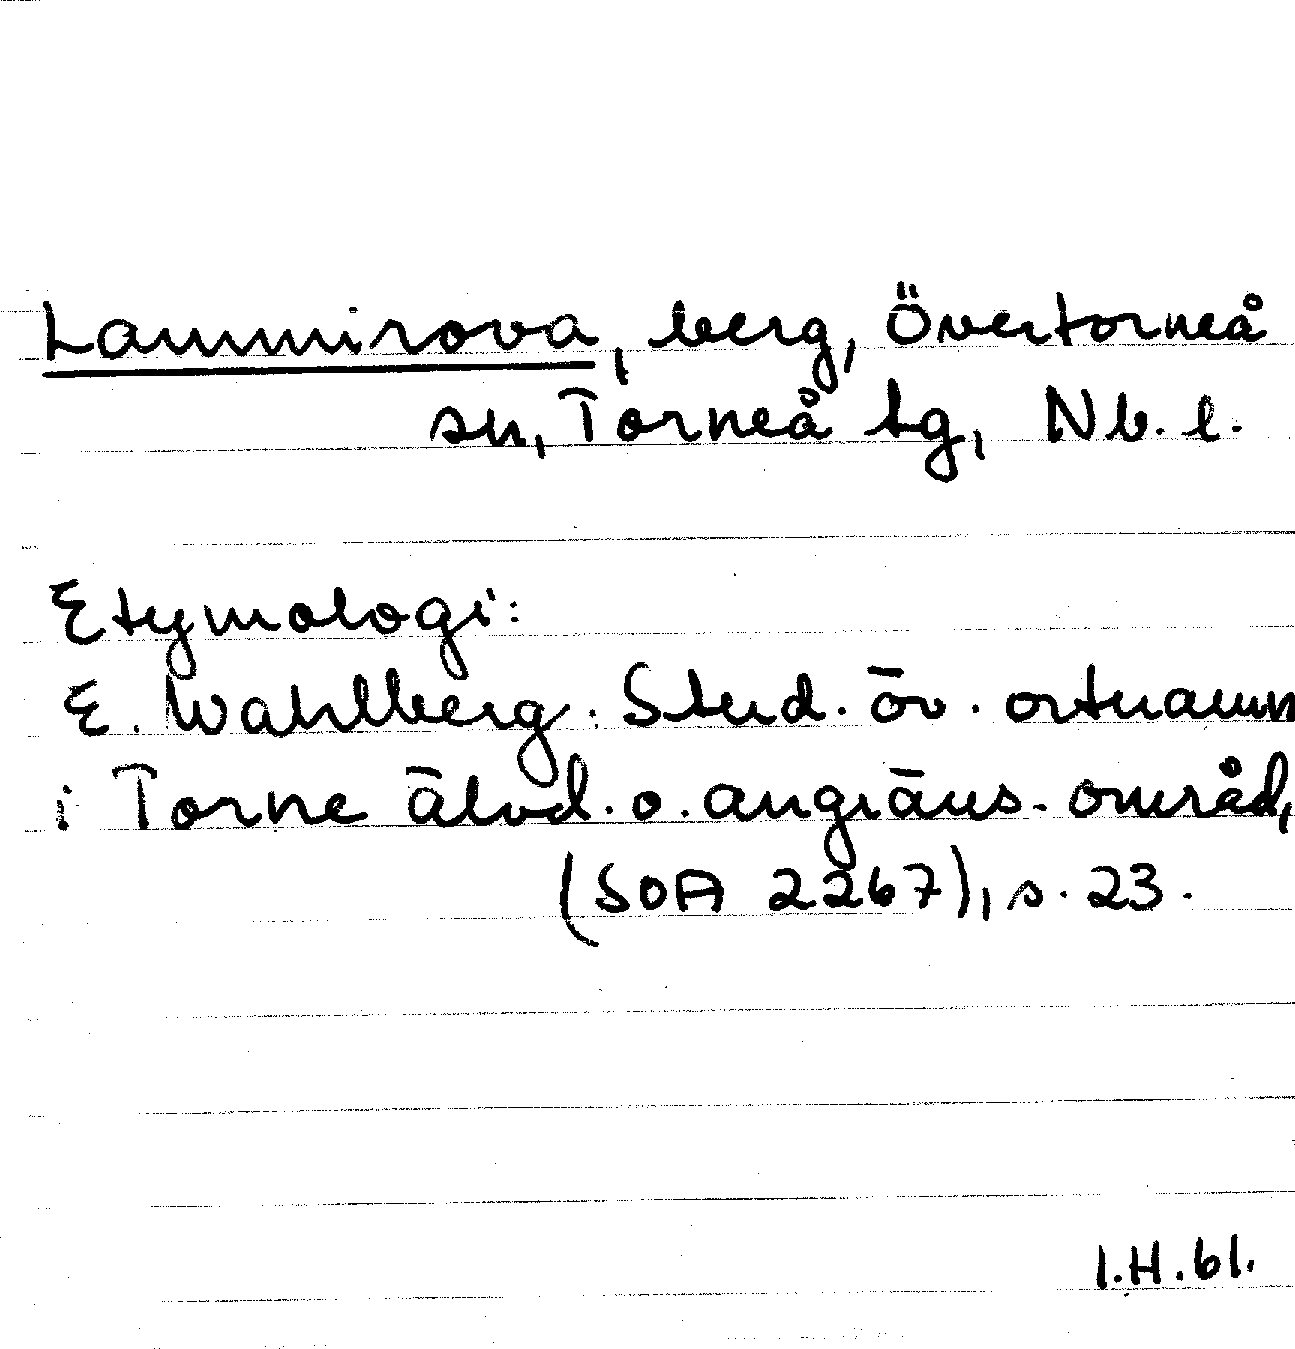 Lammirova, berg, Övertorneå
sn, Torneå tg, Nb. l.
Etymologi:
E. Wahlberg: Stud. öv. ortnamn
i Torne älvd. o. angräns. områd,
(SOA 2267), s. 23.
I.H.61.